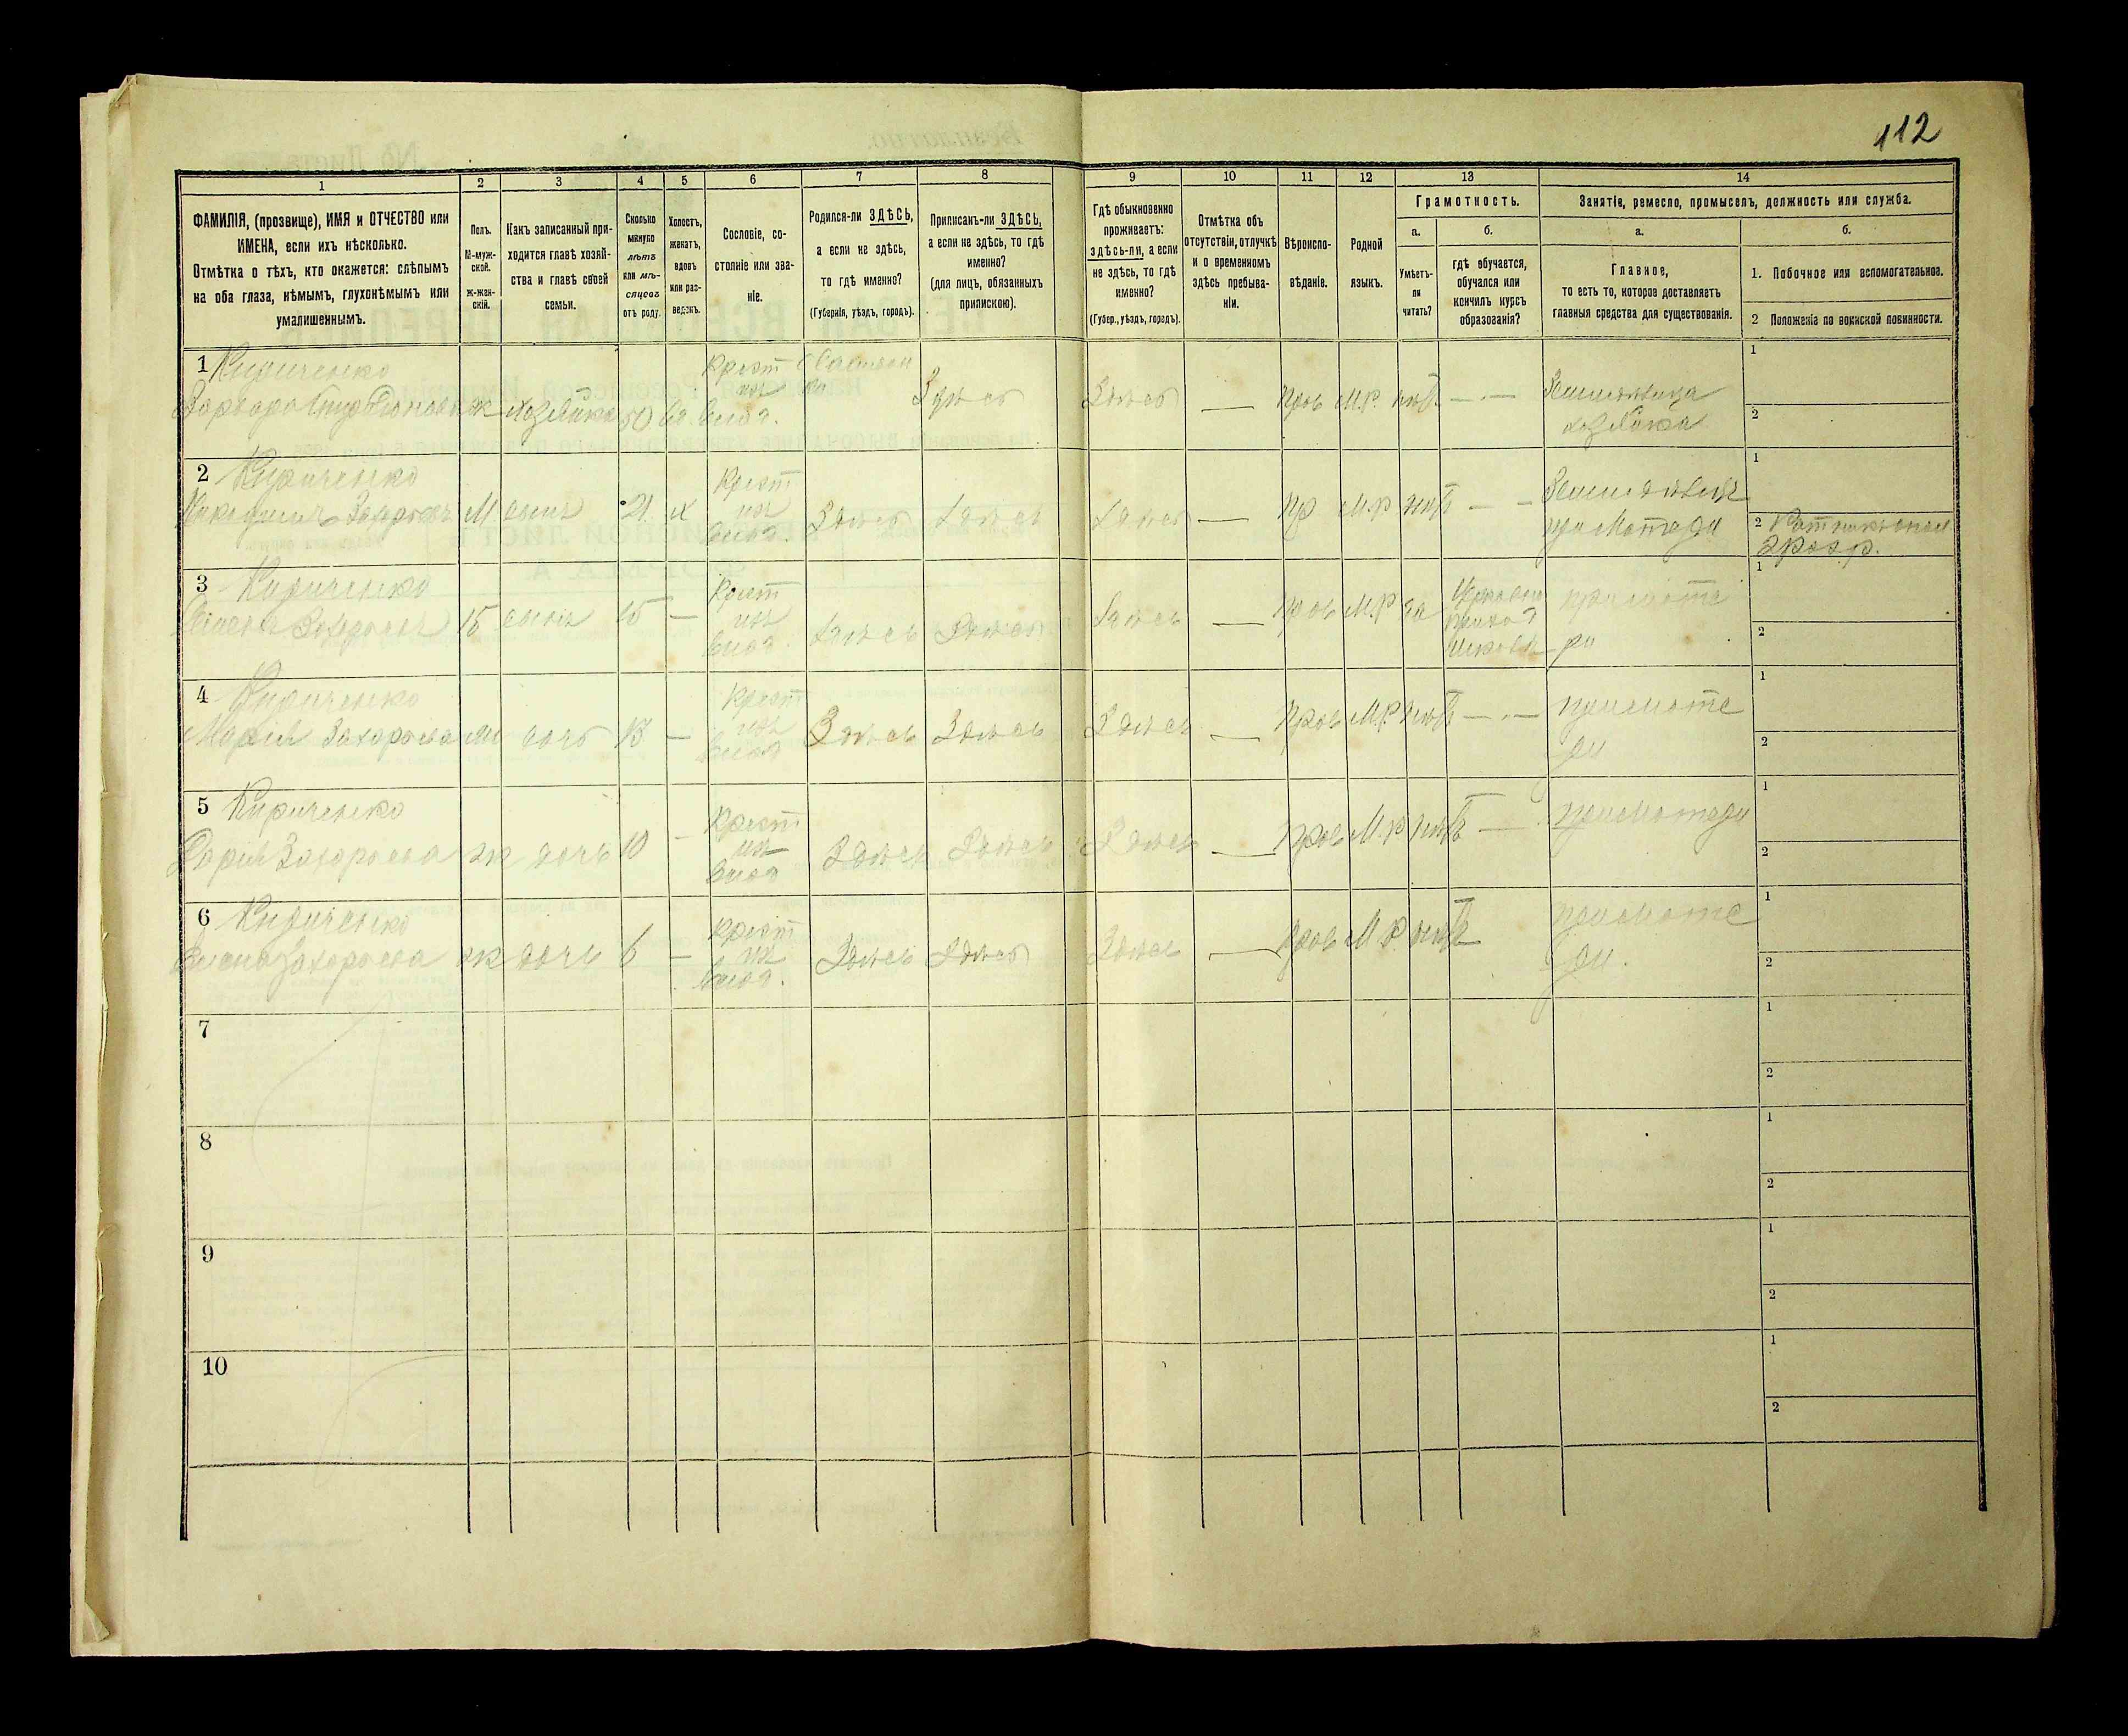 112
1
2
3
4
5
6
7
8
9
10
11
12
13
14
ФАМИЛІЯ, (прозвище), ИМЯ и ОТЧЕСТВО или
ИМЕНА, если ихъ нѣсколько.
Отмѣтка о тѣхъ, кто окажется: слѣпымъ
на оба глаза, нѣмымъ, глухонѣмымъ или
умалишеннымъ.
Полъ.
М-муж-
ской.
Ж-жен-
скій.
Какъ записанный при-
ходится главѣ хозяй-
ства и главѣ своей
семьи.
Сколько
минуло
лѣтъ
или мѣ-
сяцевъ
отъ роду.
Холостъ,
женатъ,
вдовъ
или раз-
веденъ.
Сословіе, со-
стояніе или зва-
ніе.
Родился-ли ЗДѢСЬ,
а если не здѣсь,
то гдѣ именно?
(Губернія, уѣздъ, городъ).
Приписанъ-ли ЗДѢСЬ,
а если не здѣсь, то гдѣ
именно?
(для лицъ, обязанныхъ
припискою).
Гдѣ обыкновенно
проживаетъ:
здѣсь-ли, а если
не здѣсь, то гдѣ
именно?
(Губер., уѣздъ, городъ).
Отмѣтка объ
отсутствіи, отлучкѣ
и о временномъ
здѣсь пребыва-
ніи.
Вѣроиспо-
вѣданіе.
Родной
языкъ.
Грамотность.
а.
Умѣетъ-
ли
читать?
б.
гдѣ обучается,
обучался или
кончилъ курсъ
образованія?
Занятіе, ремесло, промыселъ, должность или служба.
а.
Главное,
то есть то, которое доставляетъ
главныя средства для существованія.
б.
1. Побочное или вспомогательное.
2 Положеніе по воинской повинности.
1 Кириченко
Варвара
ж хозяйка 50 вд.
Крест
изъ
влад.
Здѣсь
Здѣсь — Прав М.Р. нѣтъ — —
хозяйка
1
2
2 Кириченко
М сынъ 21 х
Крест
изъ
влад.
Здѣсь Здѣсь
Здѣсь — Пр М.Р нѣтъ — —
при матери
1
2
2 разр.
3 Кириченко
сынъ 15 —
Крест
изъ
влад.
Здѣсь Здѣсь
Здѣсь — Прав М.Р да
при мате
ри
1
2
4 Кириченко
Марія Захарьева дочь 13 —
Крест
изъ
влад
Здѣсь Здѣсь
Здѣсь — Прав М.Р. нѣтъ — —
при мате
ри
1
2
5 Кириченко
Дарія Захарьева ж дочь 10 —
Крест
изъ
влад
Здѣсь Здѣсь
Здѣсь — Прав М.Р нѣтъ —
при матери
1
2
6 Кириченко
Захарьева ж дочь 6 —
Крест
изъ
влад.
Здѣсь Здѣсь
Здѣсь — Прав М.Р. нѣтъ
при мате
ри.
1
2
7
1
2
8
1
2
9
1
2
10
1
2